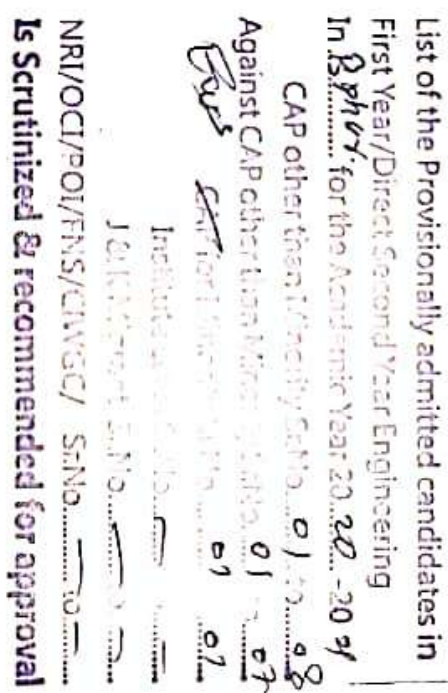 List of the Provisionally admitted candidates in
First Year/Direct Second Year Engineering
In B.phar for the Academic Year 2020-2021
CAP other than Minority Sr.No. 01 to 08
Against CAP other than 01 07
EWS CAP for 01 01
Institute
J & K Sr.No.
NRI/OCI/POI/FNS/CIWGC/ Sr.No. — to —
Is Scrutinized & recommended for approval